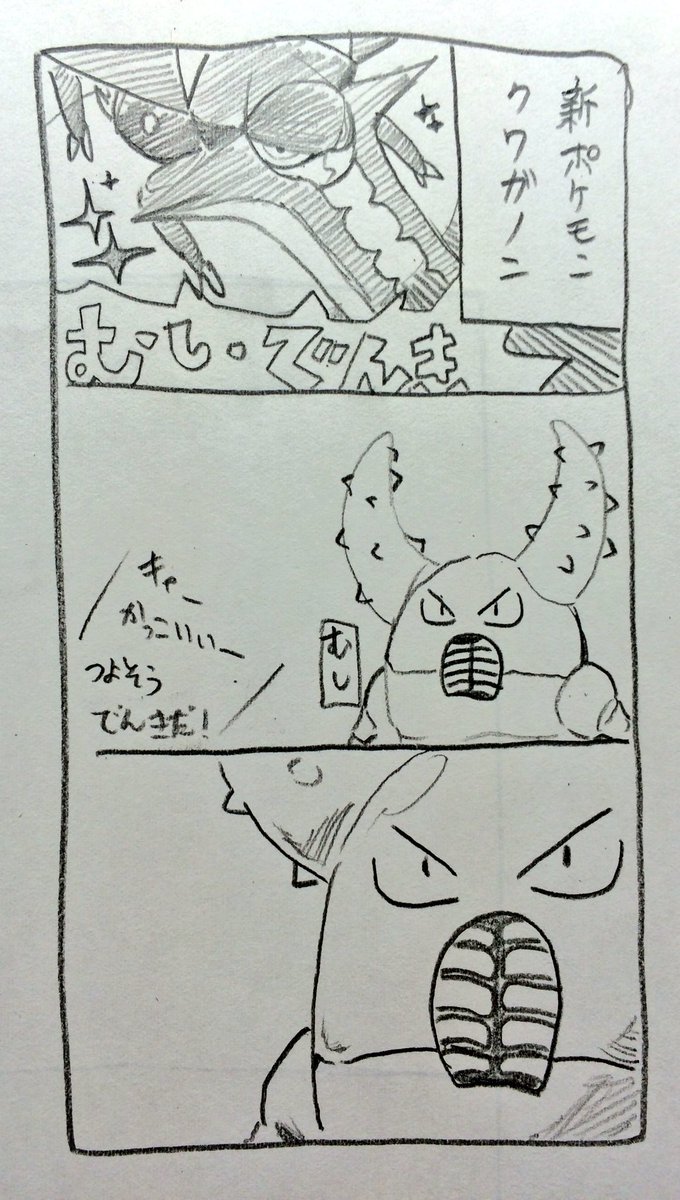 新ポケモン
クワガノン
むし・でんき
むし
キャー
かっこいいー
つよそう
でんきだ!